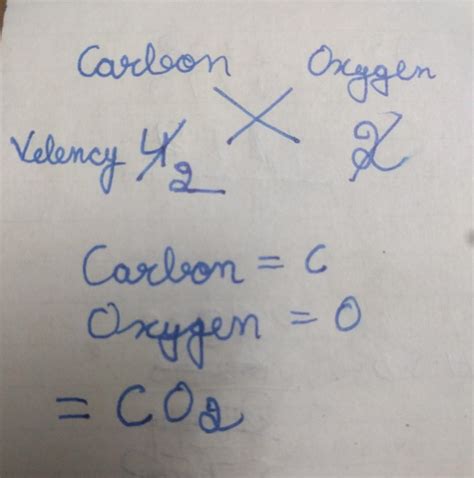 Carbon Oxygen
Velency 4 2 2
Carbon = C
Oxygen = O
= CO2